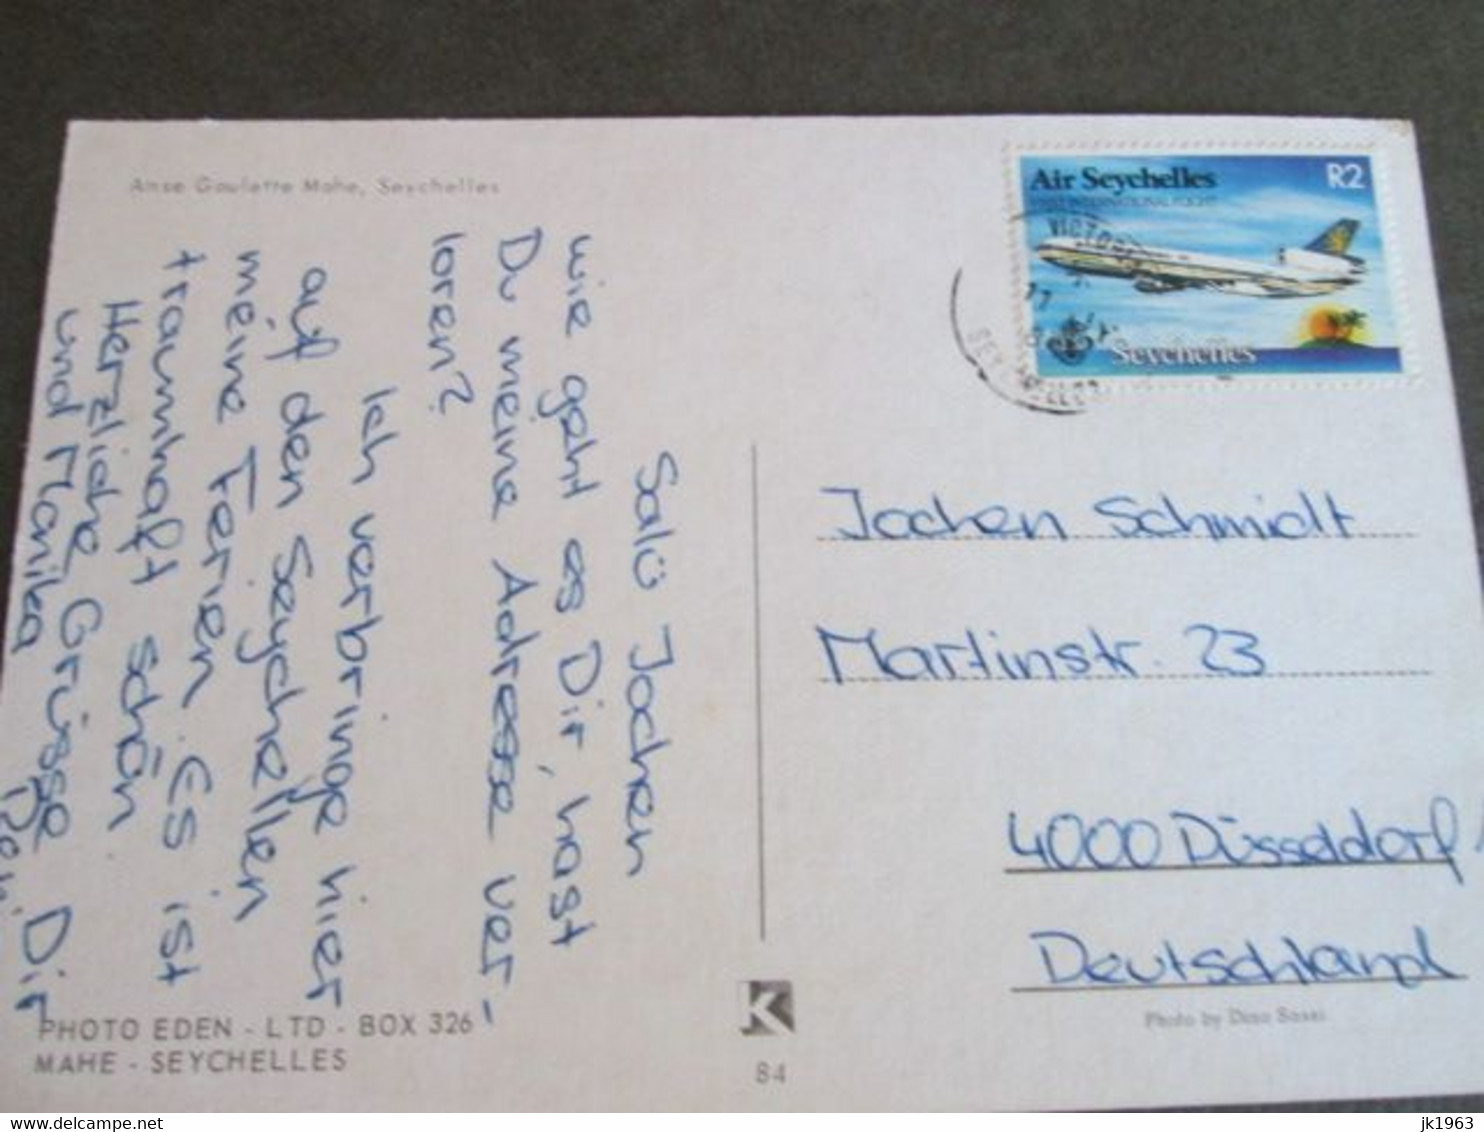 Anse Goulette Mahe, Seychelles
Air Seychelles R2
INTERNATIONAL FLIGHT
Seychelles
Salü Jochen
wie geht es Dir, hast
Du meine Adresse ver-
loren?
Ich verbringe hier
auf den Seychellen
meine Ferien. Es ist
traumhaft schön
Herzliche Grüsse Dir
und
Jochen Schmidt
Martinstr. 23
4000 Düsseldorf
Deutschland
PHOTO EDEN - LTD - BOX 326
MAHE - SEYCHELLES
K
84
Photo by Dino Sassi
jk1963